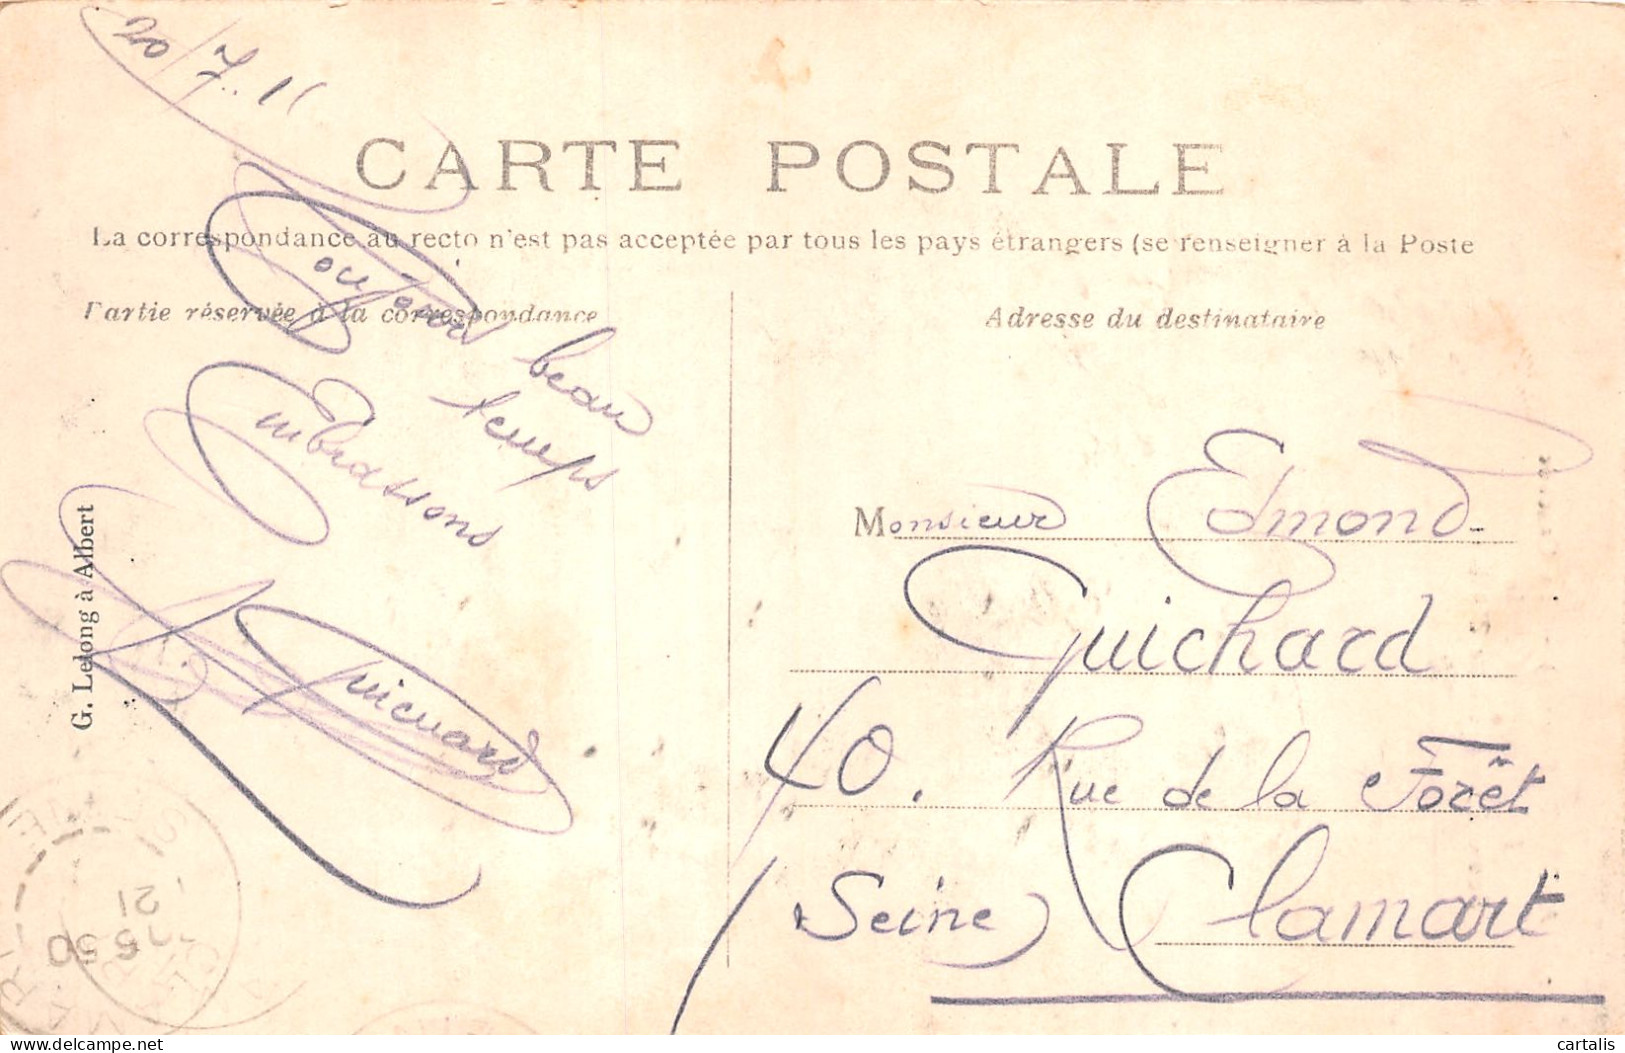 20/7.11
CARTE POSTALE
La correspondance au recto n'est pas acceptée par tous les pays étrangers (se renseigner à la Poste
Partie réservée à la correspondance
Adresse du destinataire
Toujours beau
temps
Embrassons
Guichard
G. Lelong à Albert
Monsieur Edmond
Guichard
40. Rue de la Forêt
Clamart
(Seine)
21
5 50
cartalis